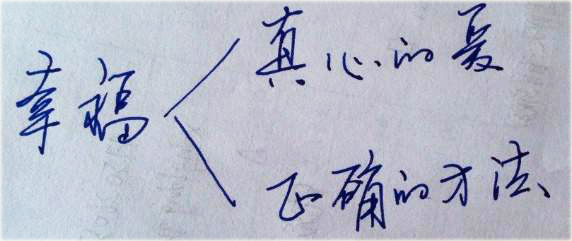 真心的爱
幸福
正确的方法